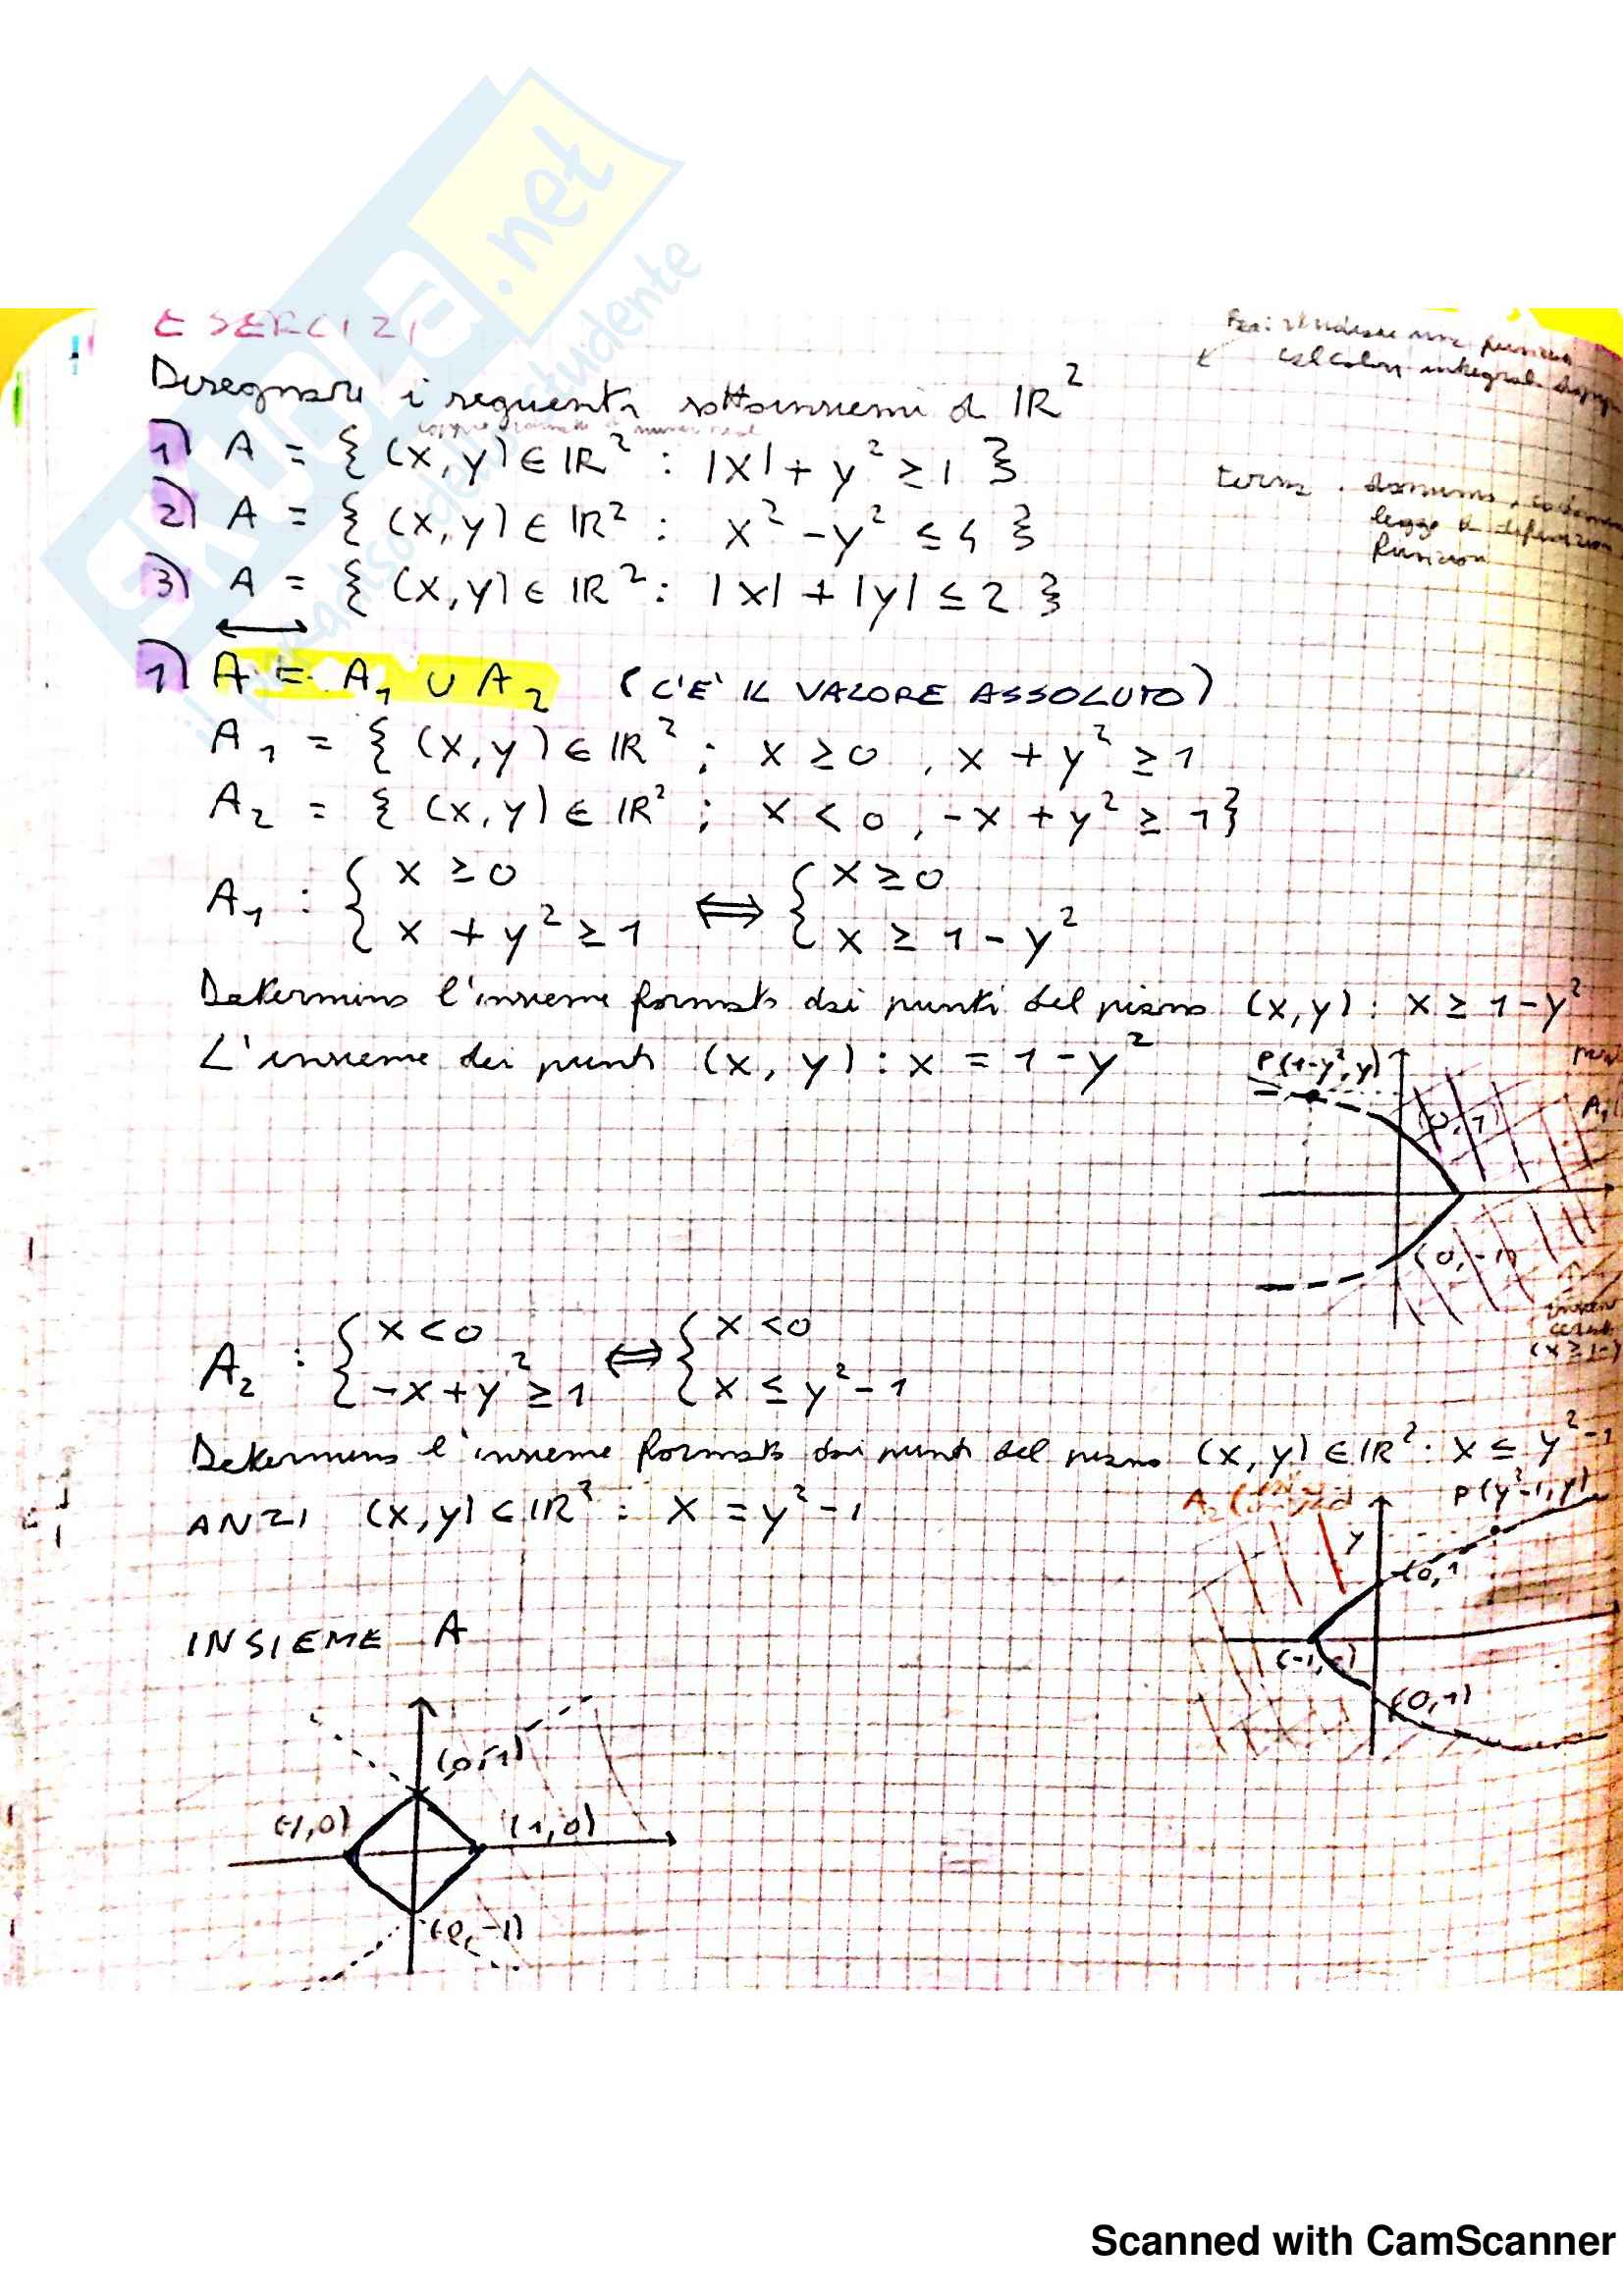 SKUOLA.net
ESERCIZI
Disegnare i seguenti sottoinsiemi di IR²
coppie ordinate di numeri reali
1) A = { (x,y) ∈ IR² : |x| + y² ≥ 1 }
2) A = { (x,y) ∈ IR² : x² - y² ≤ 4 }
3) A = { (x,y) ∈ IR² : |x| + |y| ≤ 2 }
terna . dominio, codominio
legge di definizione
funzione
1) A = A₁ ∪ A₂ (C'E' IL VALORE ASSOLUTO)
A₁ = { (x,y) ∈ IR² ; x ≥ 0 , x + y² ≥ 1
A₂ = { (x,y) ∈ IR² ; x < 0 , -x + y² ≥ 1 }
A₁ : { x ≥ 0 ⟺ { x ≥ 0
x + y² ≥ 1 x ≥ 1 - y²
Determino l'insieme formato dai punti del piano (x,y) : x ≥ 1 - y²
L'insieme dei punti (x, y) : x = 1 - y²
P(1-y²,y)
A₁
(0,1)
(0,-1)
A₂ : { x < 0 ⟺ { x < 0
-x + y² ≥ 1 x ≤ y² - 1
Determino l'insieme formato dai punti del piano (x,y) ∈ IR² : x ≤ y² - 1
ANZI (x,y) ∈ IR² : x = y² - 1
A₂
P(y²-1,y)
y
(0,1
(-1,0)
(0,1)
INSIEME A
(0,1)
(-1,0)
(1,0)
(0,-1)
Scanned with CamScanner